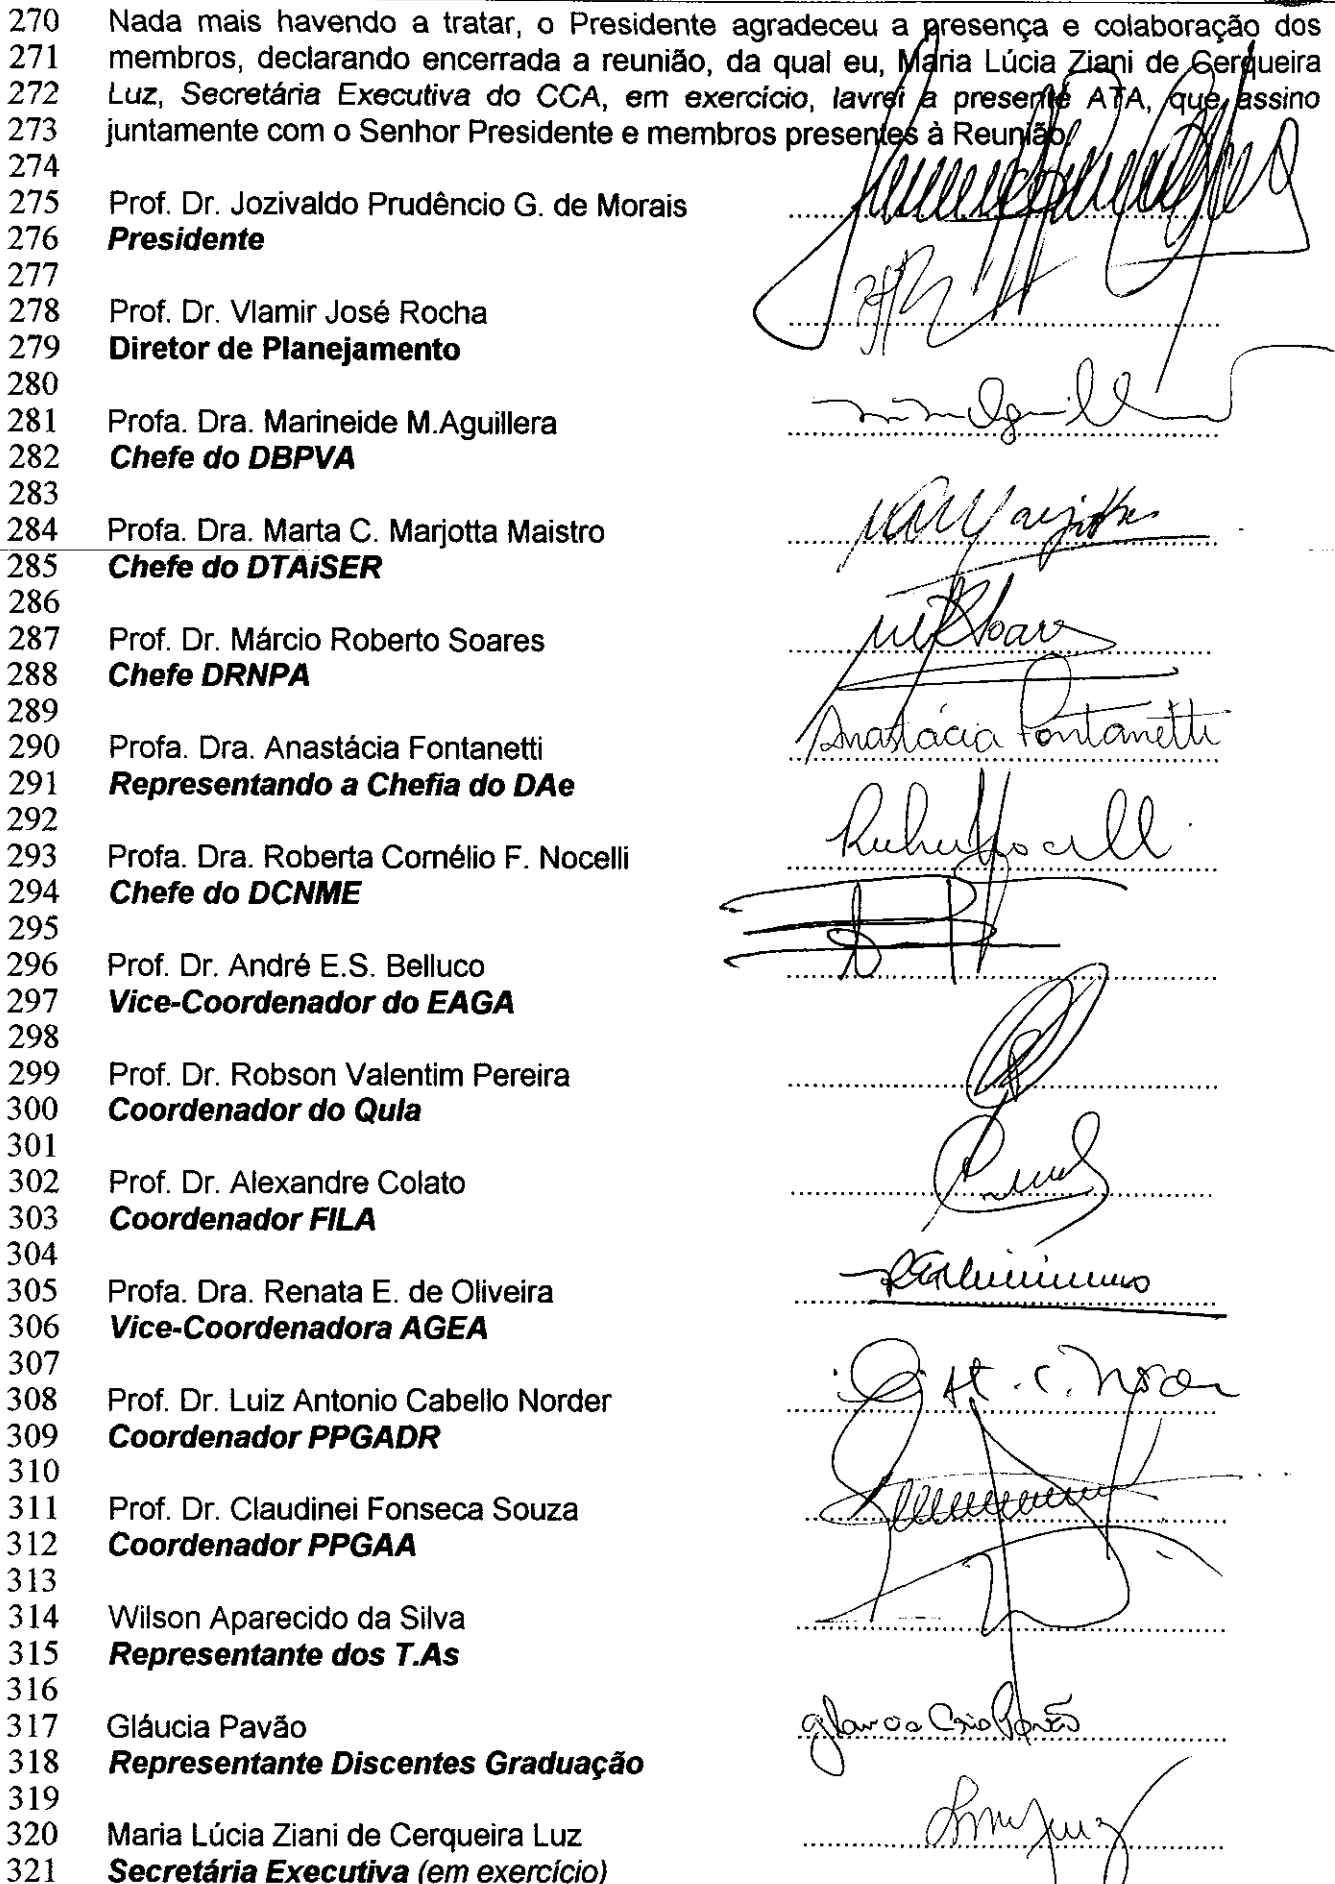 270 Nada mais havendo a tratar, o Presidente agradeceu a presença e colaboração dos
271 membros, declarando encerrada a reunião, da qual eu, Maria Lúcia Ziani de Cerqueira
272 Luz, Secretária Executiva do CCA, em exercício, lavrei a presente ATA, que assino
273 juntamente com o Senhor Presidente e membros presentes à Reunião
274
275 Prof. Dr. Jozivaldo Prudêncio G. de Morais
276 Presidente
277
278 Prof. Dr. Vlamir José Rocha
279 Diretor de Planejamento
280
281 Profa. Dra. Marineide M.Aguillera
282 Chefe do DBPVA
283
284 Profa. Dra. Marta C. Marjotta Maistro
285 Chefe do DTAiSER
286
287 Prof. Dr. Márcio Roberto Soares
288 Chefe DRNPA
289
290 Profa. Dra. Anastácia Fontanetti Anastácia Fontanetti
291 Representando a Chefia do DAe
292
293 Profa. Dra. Roberta Cornélio F. Nocelli
294 Chefe do DCNME
295
296 Prof. Dr. André E.S. Belluco
297 Vice-Coordenador do EAGA
298
299 Prof. Dr. Robson Valentim Pereira
300 Coordenador do Qula
301
302 Prof. Dr. Alexandre Colato
303 Coordenador FILA
304
305 Profa. Dra. Renata E. de Oliveira
306 Vice-Coordenadora AGEA
307
308 Prof. Dr. Luiz Antonio Cabello Norder
309 Coordenador PPGADR
310
311 Prof. Dr. Claudinei Fonseca Souza
312 Coordenador PPGAA
313
314 Wilson Aparecido da Silva
315 Representante dos T.As
316
317 Gláucia Pavão
318 Representante Discentes Graduação
319
320 Maria Lúcia Ziani de Cerqueira Luz
321 Secretária Executiva (em exercício)